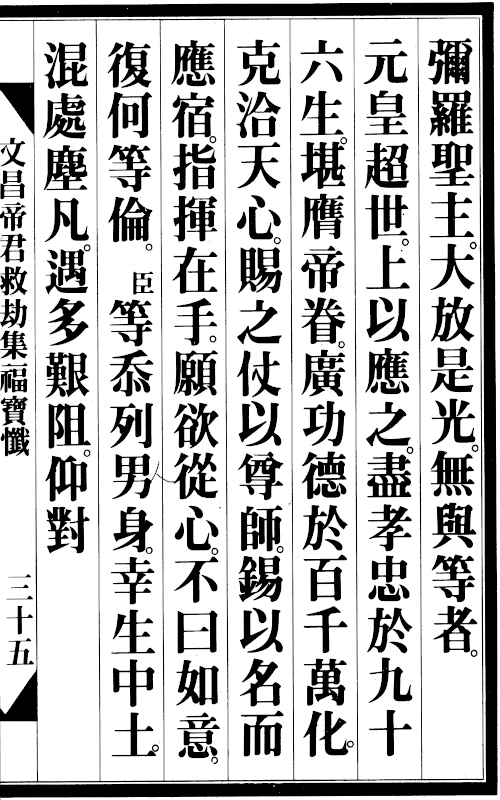 彌羅聖主。大放是光。無與等者。
元皇超世。上以應之。盡孝忠於九十
六生。堪膺帝眷。廣功德於百千萬化。
克洽天心。賜之仗以尊師。錫以名而
應宿。指揮在手。願欲從心。不曰如意。
復何等倫。臣等忝列男身。幸生中土。
混處塵凡。遇多艱阻。仰對
文昌帝君救劫集福寶懺 三十五